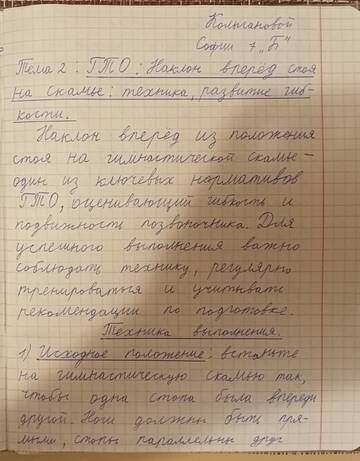 Колыгановой
Софии 7 „Б"
Тема 2: ГТО: Наклон вперёд стоя
на скамье: техника, развитие гиб-
кости.
Наклон вперед из положения
стоя на гимнастической скамье –
один из ключевых нормативов
ГТО, оценивающий гибкость и
подвижность позвоночника. Для
успешного выполнения важно
соблюдать технику, регулярно
тренироваться и учитывать
рекомендации по подготовке.
Техника выполнения.
1) Исходное положение: встаньте
на гимнастическую скамью так,
чтобы одна стопа была впереди
другой. Ноги должны быть пря-
мыми, стопы параллельны друг